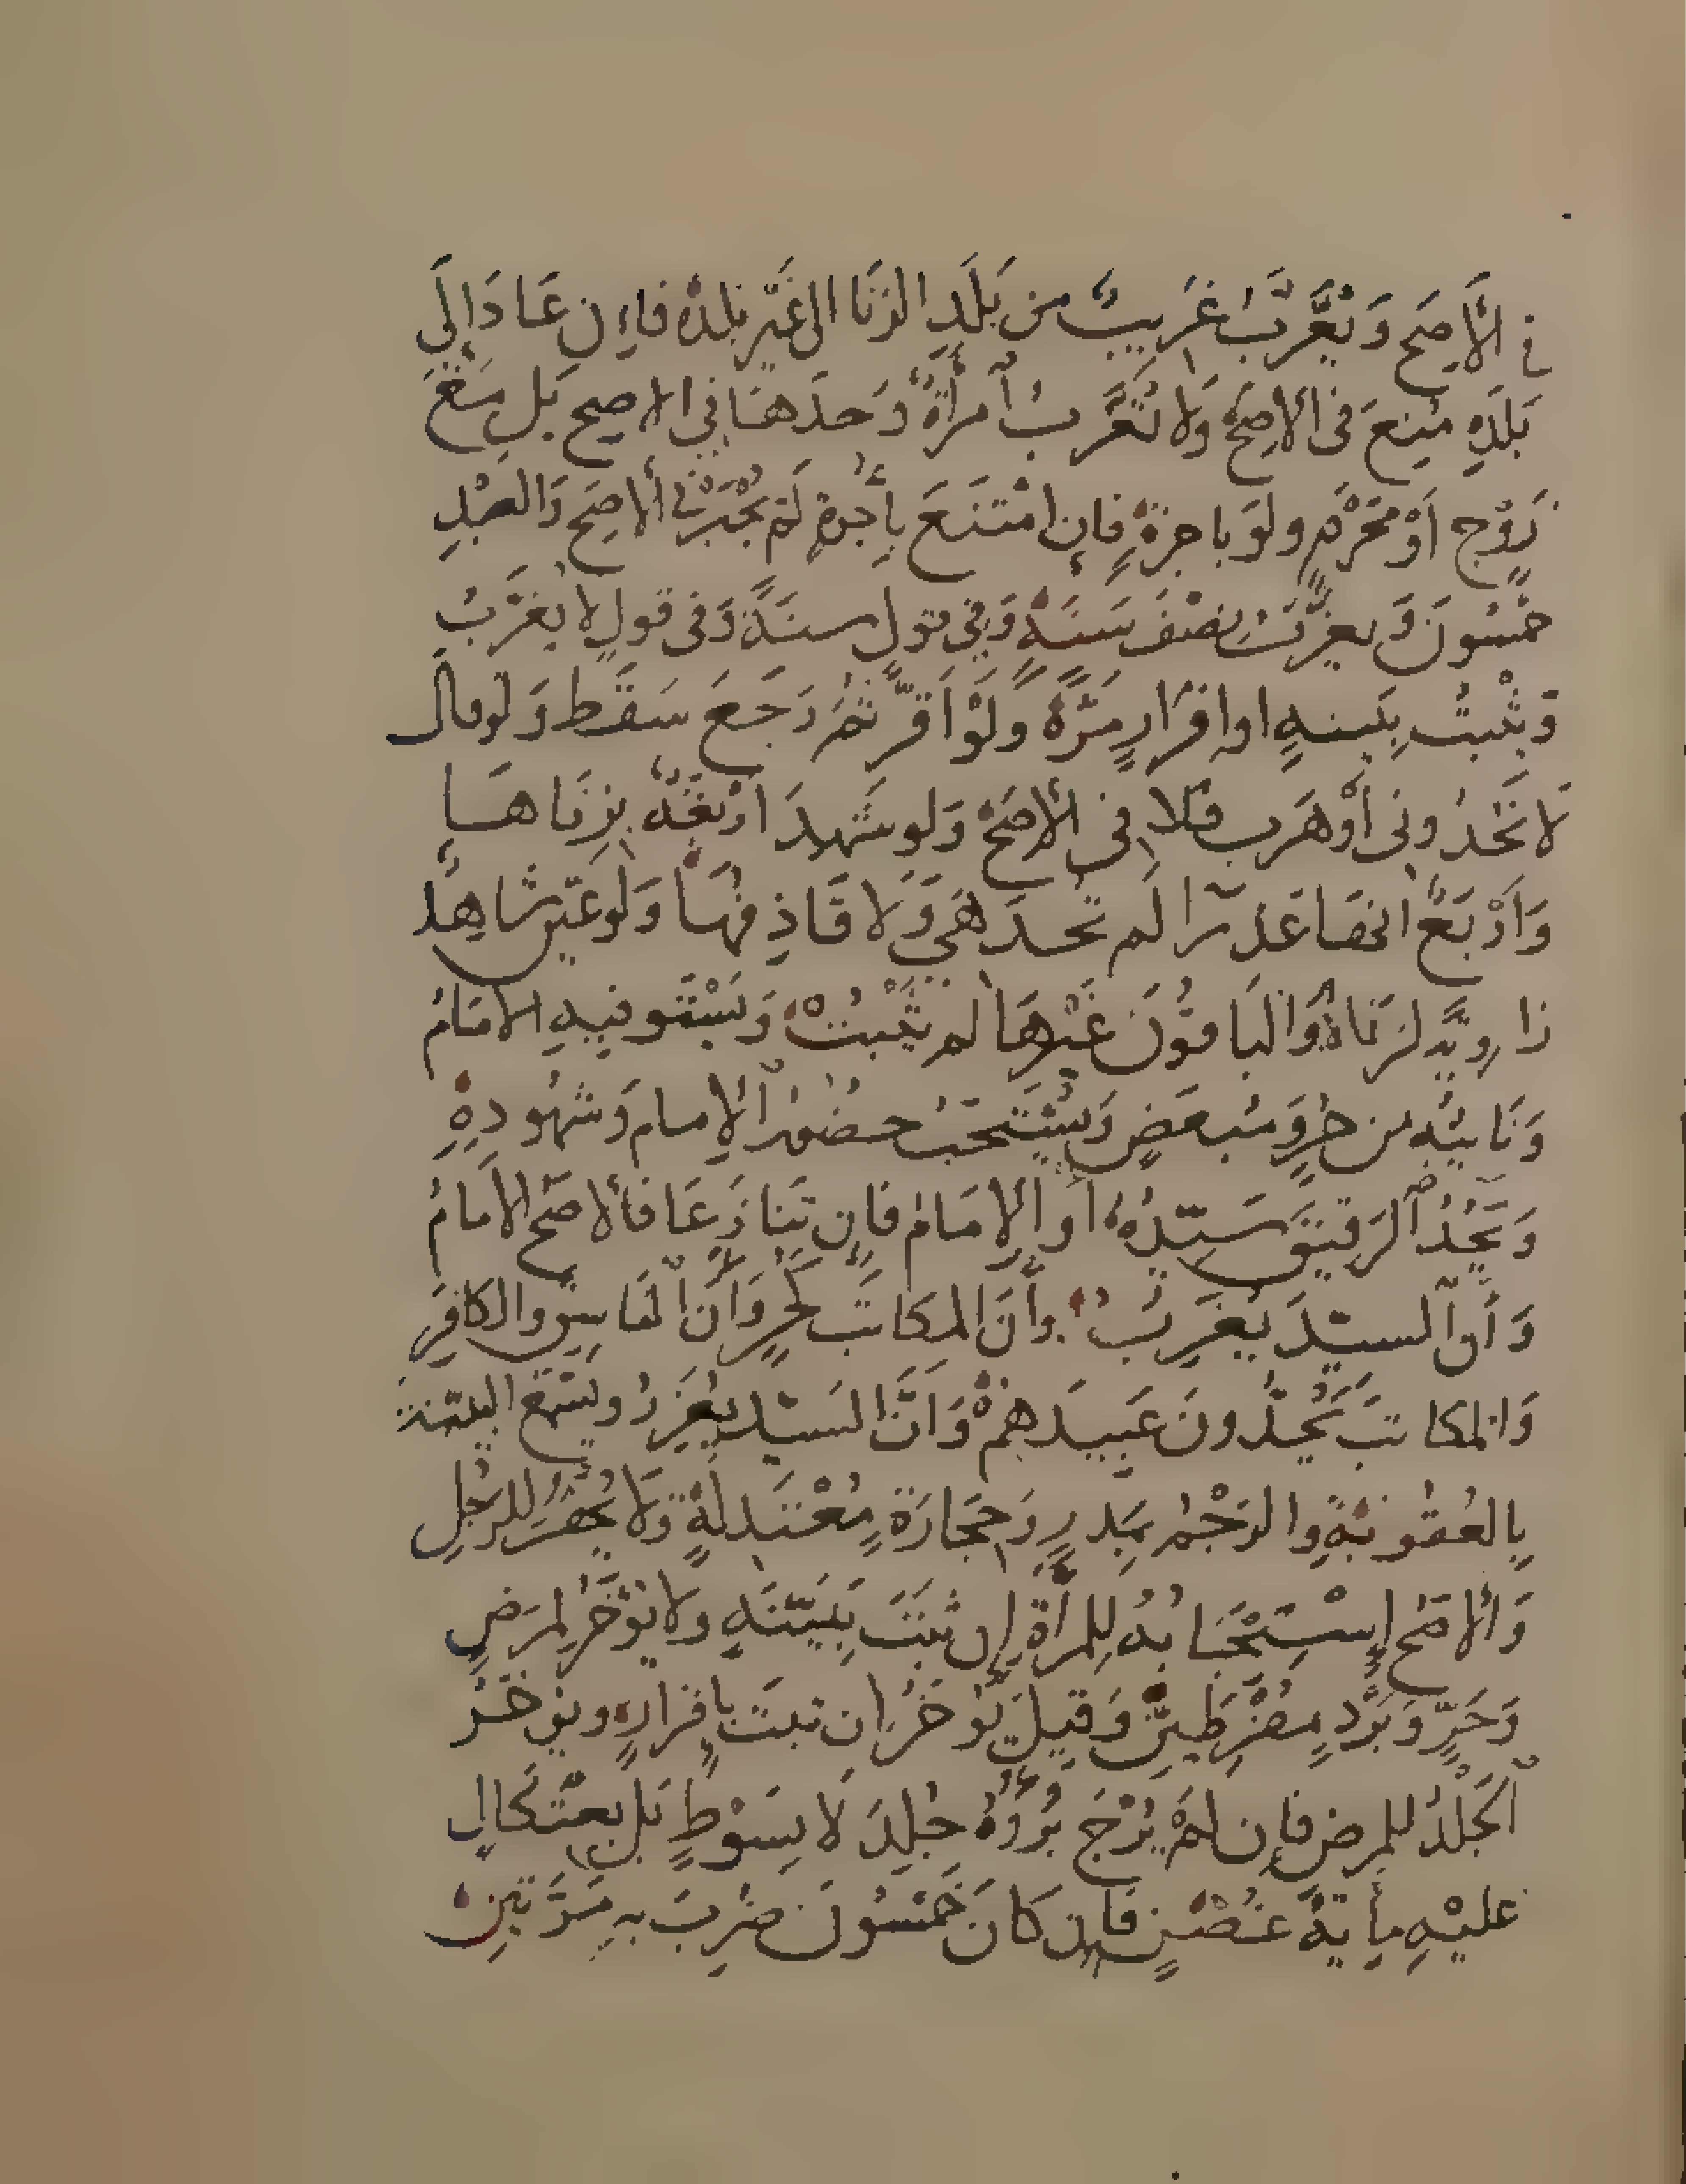 في الأَصَح وَيُغَرَّبُ غَرِيبٌ من بَلَدِ الزنَا الى غَيْرِ بَلدهْ فاءِن عَادَ إلَى
بَلَدِهِ مُنِعَ فى الاَصَحْ وَلا تُغَرَّبُ امرأةٌ وَحدَهَا في الاصح بَل مَعَ
زَوْجٍ أَوْ مَحْرَمٍ ولَوَ باجرةٍ فَاِن امْتَنَعَ بِأُجرةٍ لَم يُجْبَرْ في الاَصَح وَالعَبْدِ
خَمْسُونَ وَيغرَّبُ نِصْفَ سَنَةٍ وَفِي قول سنَةً وَفى قولٍ لا يُغَرَّبُ
وَيَثْبُتُ بِبَينهٍ او اِقرَارٍ مَرَّةً وَلَوْ اَقَرَّ ثم رَجَعَ سَقَط وَلو قال
لَا تَحُدُّونى أَوْ هَرَب فَلا في الاَصَحْ وَلو شَهِدَ اَرْبَعَةٌ بِزِنَاهَا
وَاَرْبَعٌ انهَا عَذرَا لَم تُحَدَ هَي وَلَا قَاذِفُهَا وَلَو عَيّن شَاهِدٌ
زاويَةً لزنَاهُ وَالبَاقُونَ غَيْرهَا لم يَثْبُتْ وَيَسْتَوفِيهِ الامَامُ
وَنَايبُه من حُرٍ وَمُبَعضٍ وَيُسْتَحَبُ حضُورُ الاِمام وَشهُودِهِ
وَيَحُدُّ الرَقِيقَ سَيّدُهُ أَو الإمَامُ فَاِن تَنَازَعَا فَالاصَحُّ الامَامُ
وَأَنّ السيّدَ يُغَرِبُ وأَنَ المكَاتَب كَحُرٍ وَأنَ الفَاسِقَ والكافِرَ
وَالمكاتبَ يَحُدُّونَ عَبِيدَهِمْ وَاَنَّ السَيّد يُعَزِرُ ويَسْمَع البيّنة
بِالعُقُوبَةِ والرَجْمُ بمَدرٍ وَحِجَارَةٍ مُعْتَدِلَةٍ وَلَا يُحْفَرُ لِلرَجُلِ
وَالاصَحُ اِسْتِحْبَابُهُ لِلمرأةِ إِن ثَبَتَ بِبَيّنَهٍ وَلا يُؤَخّرُ لِمرَضٍ
وَحَرٍّ وَبَرْدٍ مُفْرِطَينِ وَقيلَ يُؤخَرُ اِن ثبتَ بِاِقرارِهِ ويؤخّرُ
الجَلْدُ لِلمرض فَاِن لَمْ يُرْجَ بُرْؤُهُ جُلِدَ لَا بِسَوْطٍ بَل بِعثكَالٍ
عليْهِ مِأيةُ غُصْنٍ فَاِن كَانَ خَمْسُونَ ضُرِبَ بِهِ مَرَّتَيْنِ